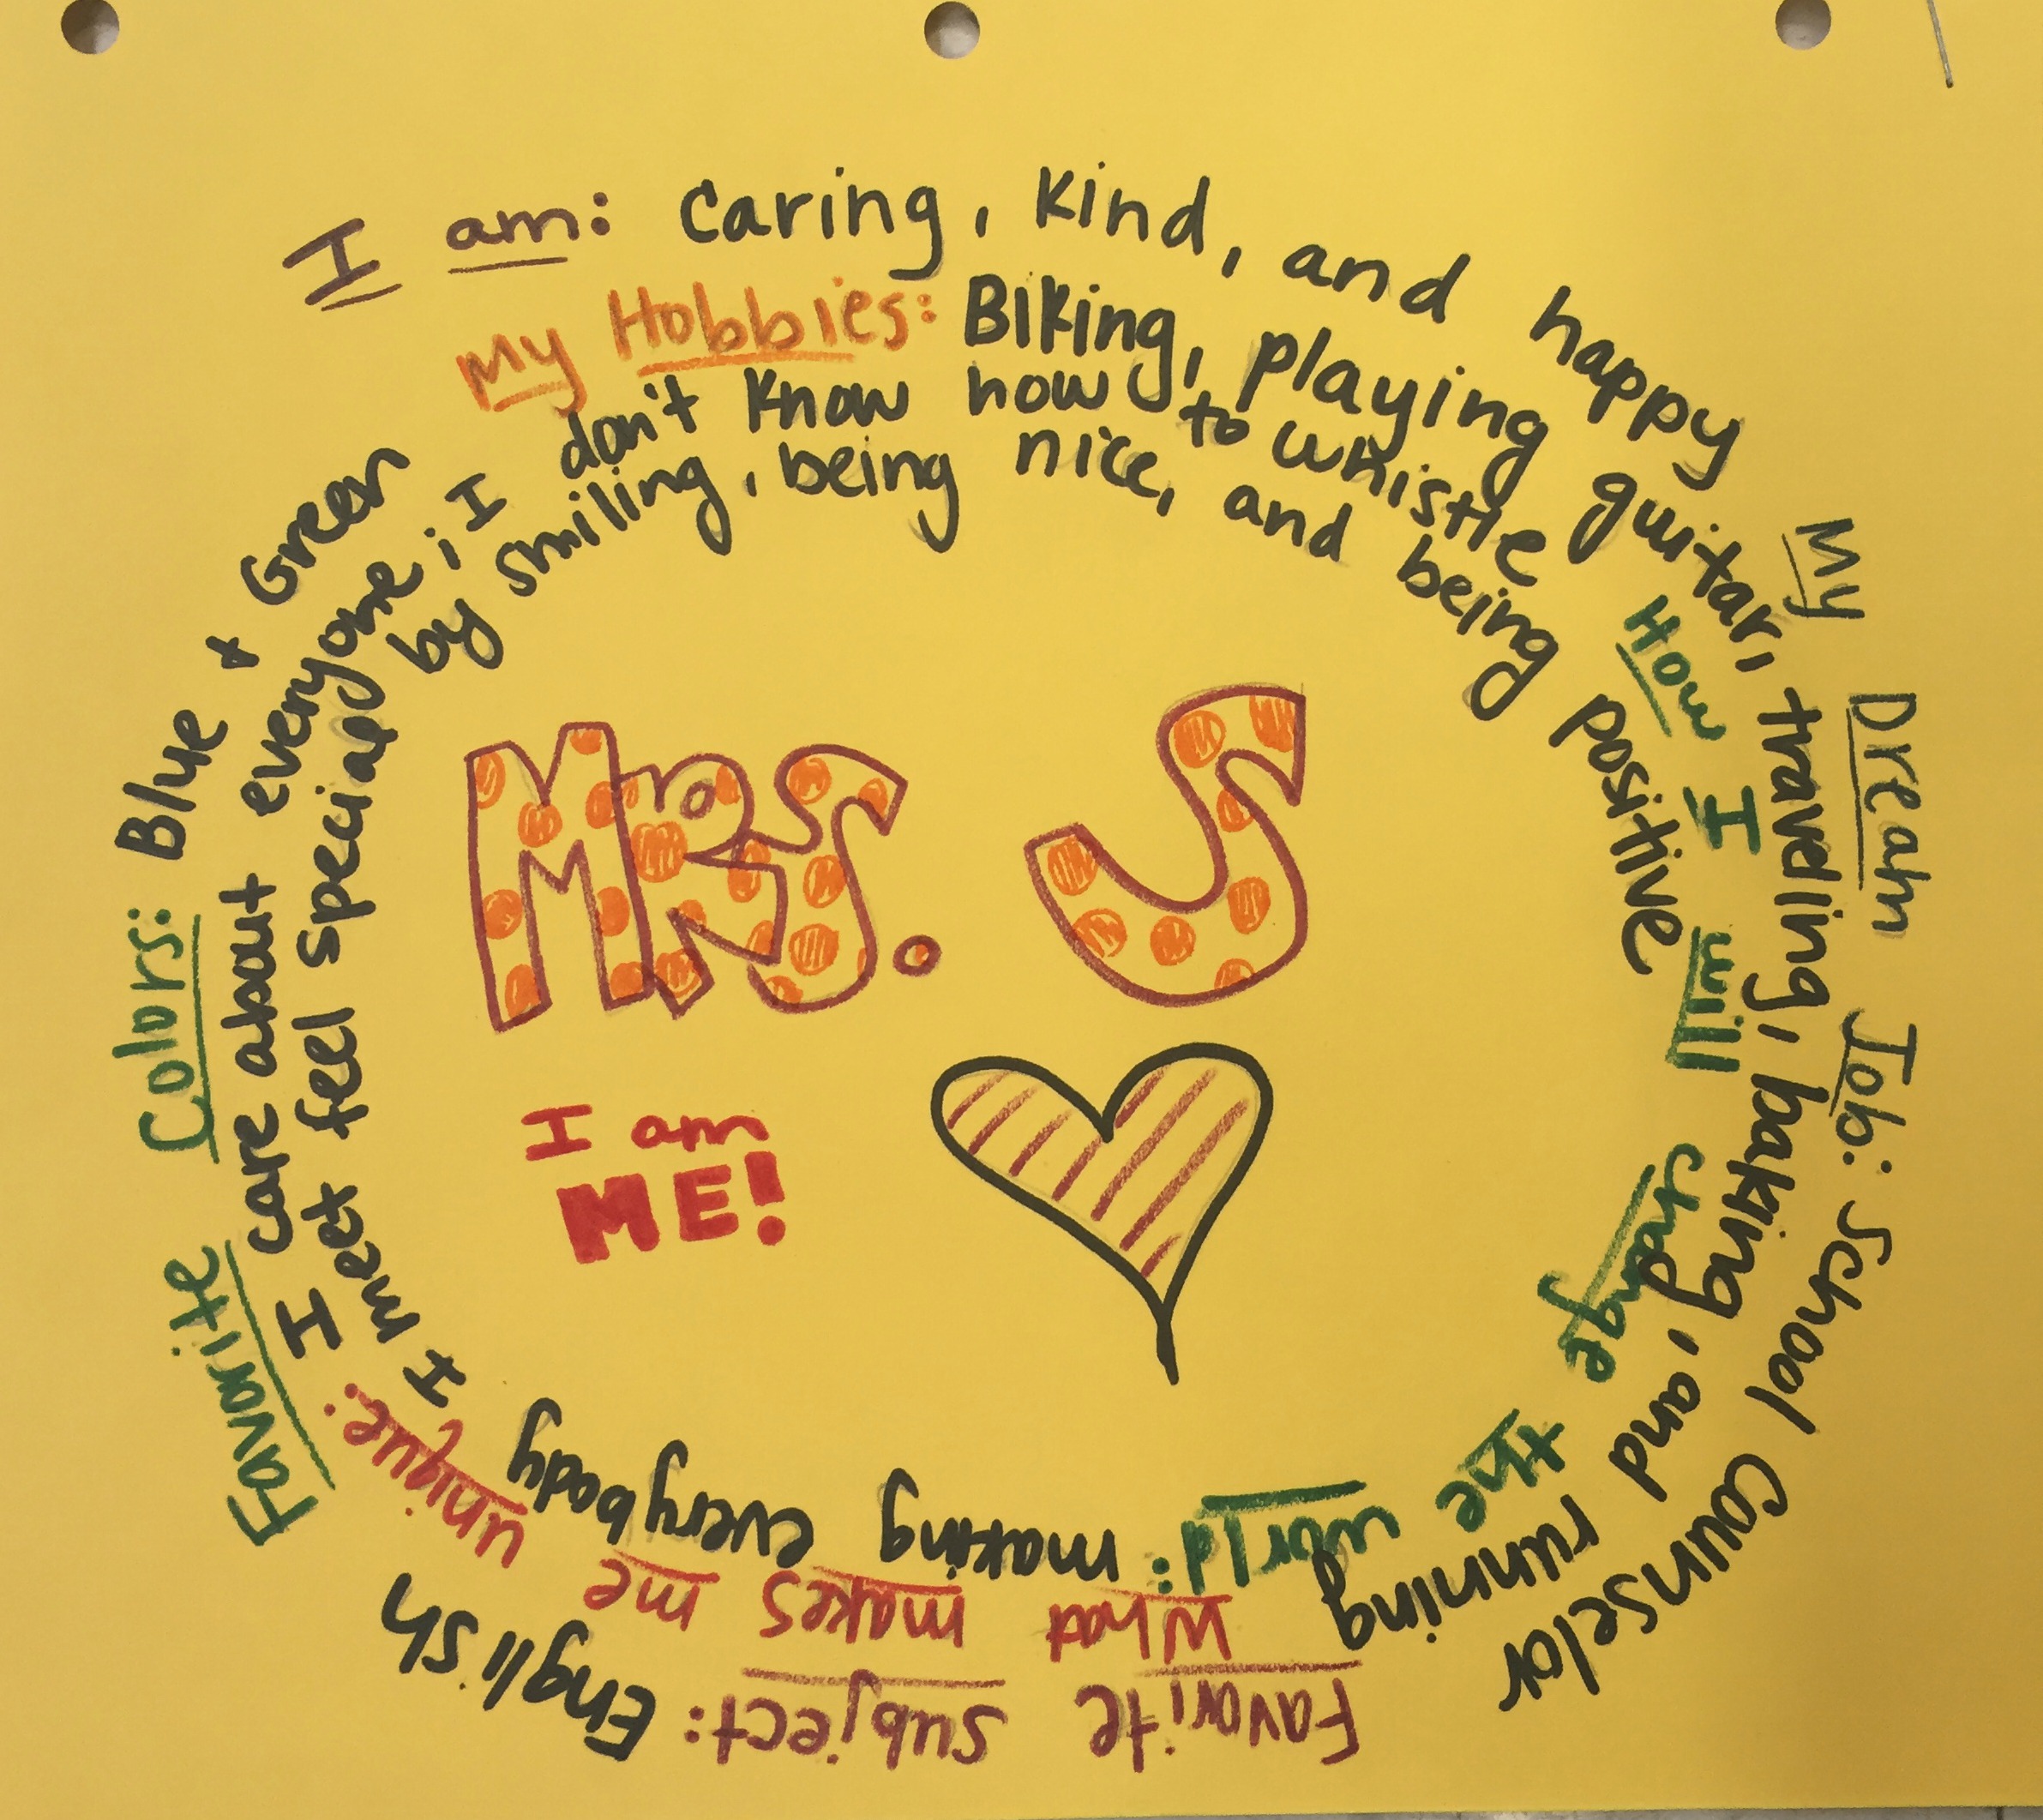 I am: Caring, kind, and happy
My Dream Job: School Counselor
Favorite Subject: English
Favorite Colors: Blue + Green
My Hobbies: Biking, playing guitar, traveling, baking, and running
What makes me unique: I care about everyone; I don't know how to whistle
How I will change the world: making everybody I meet feel special by smiling, being nice, and being positive
MRS. S
I am
ME!